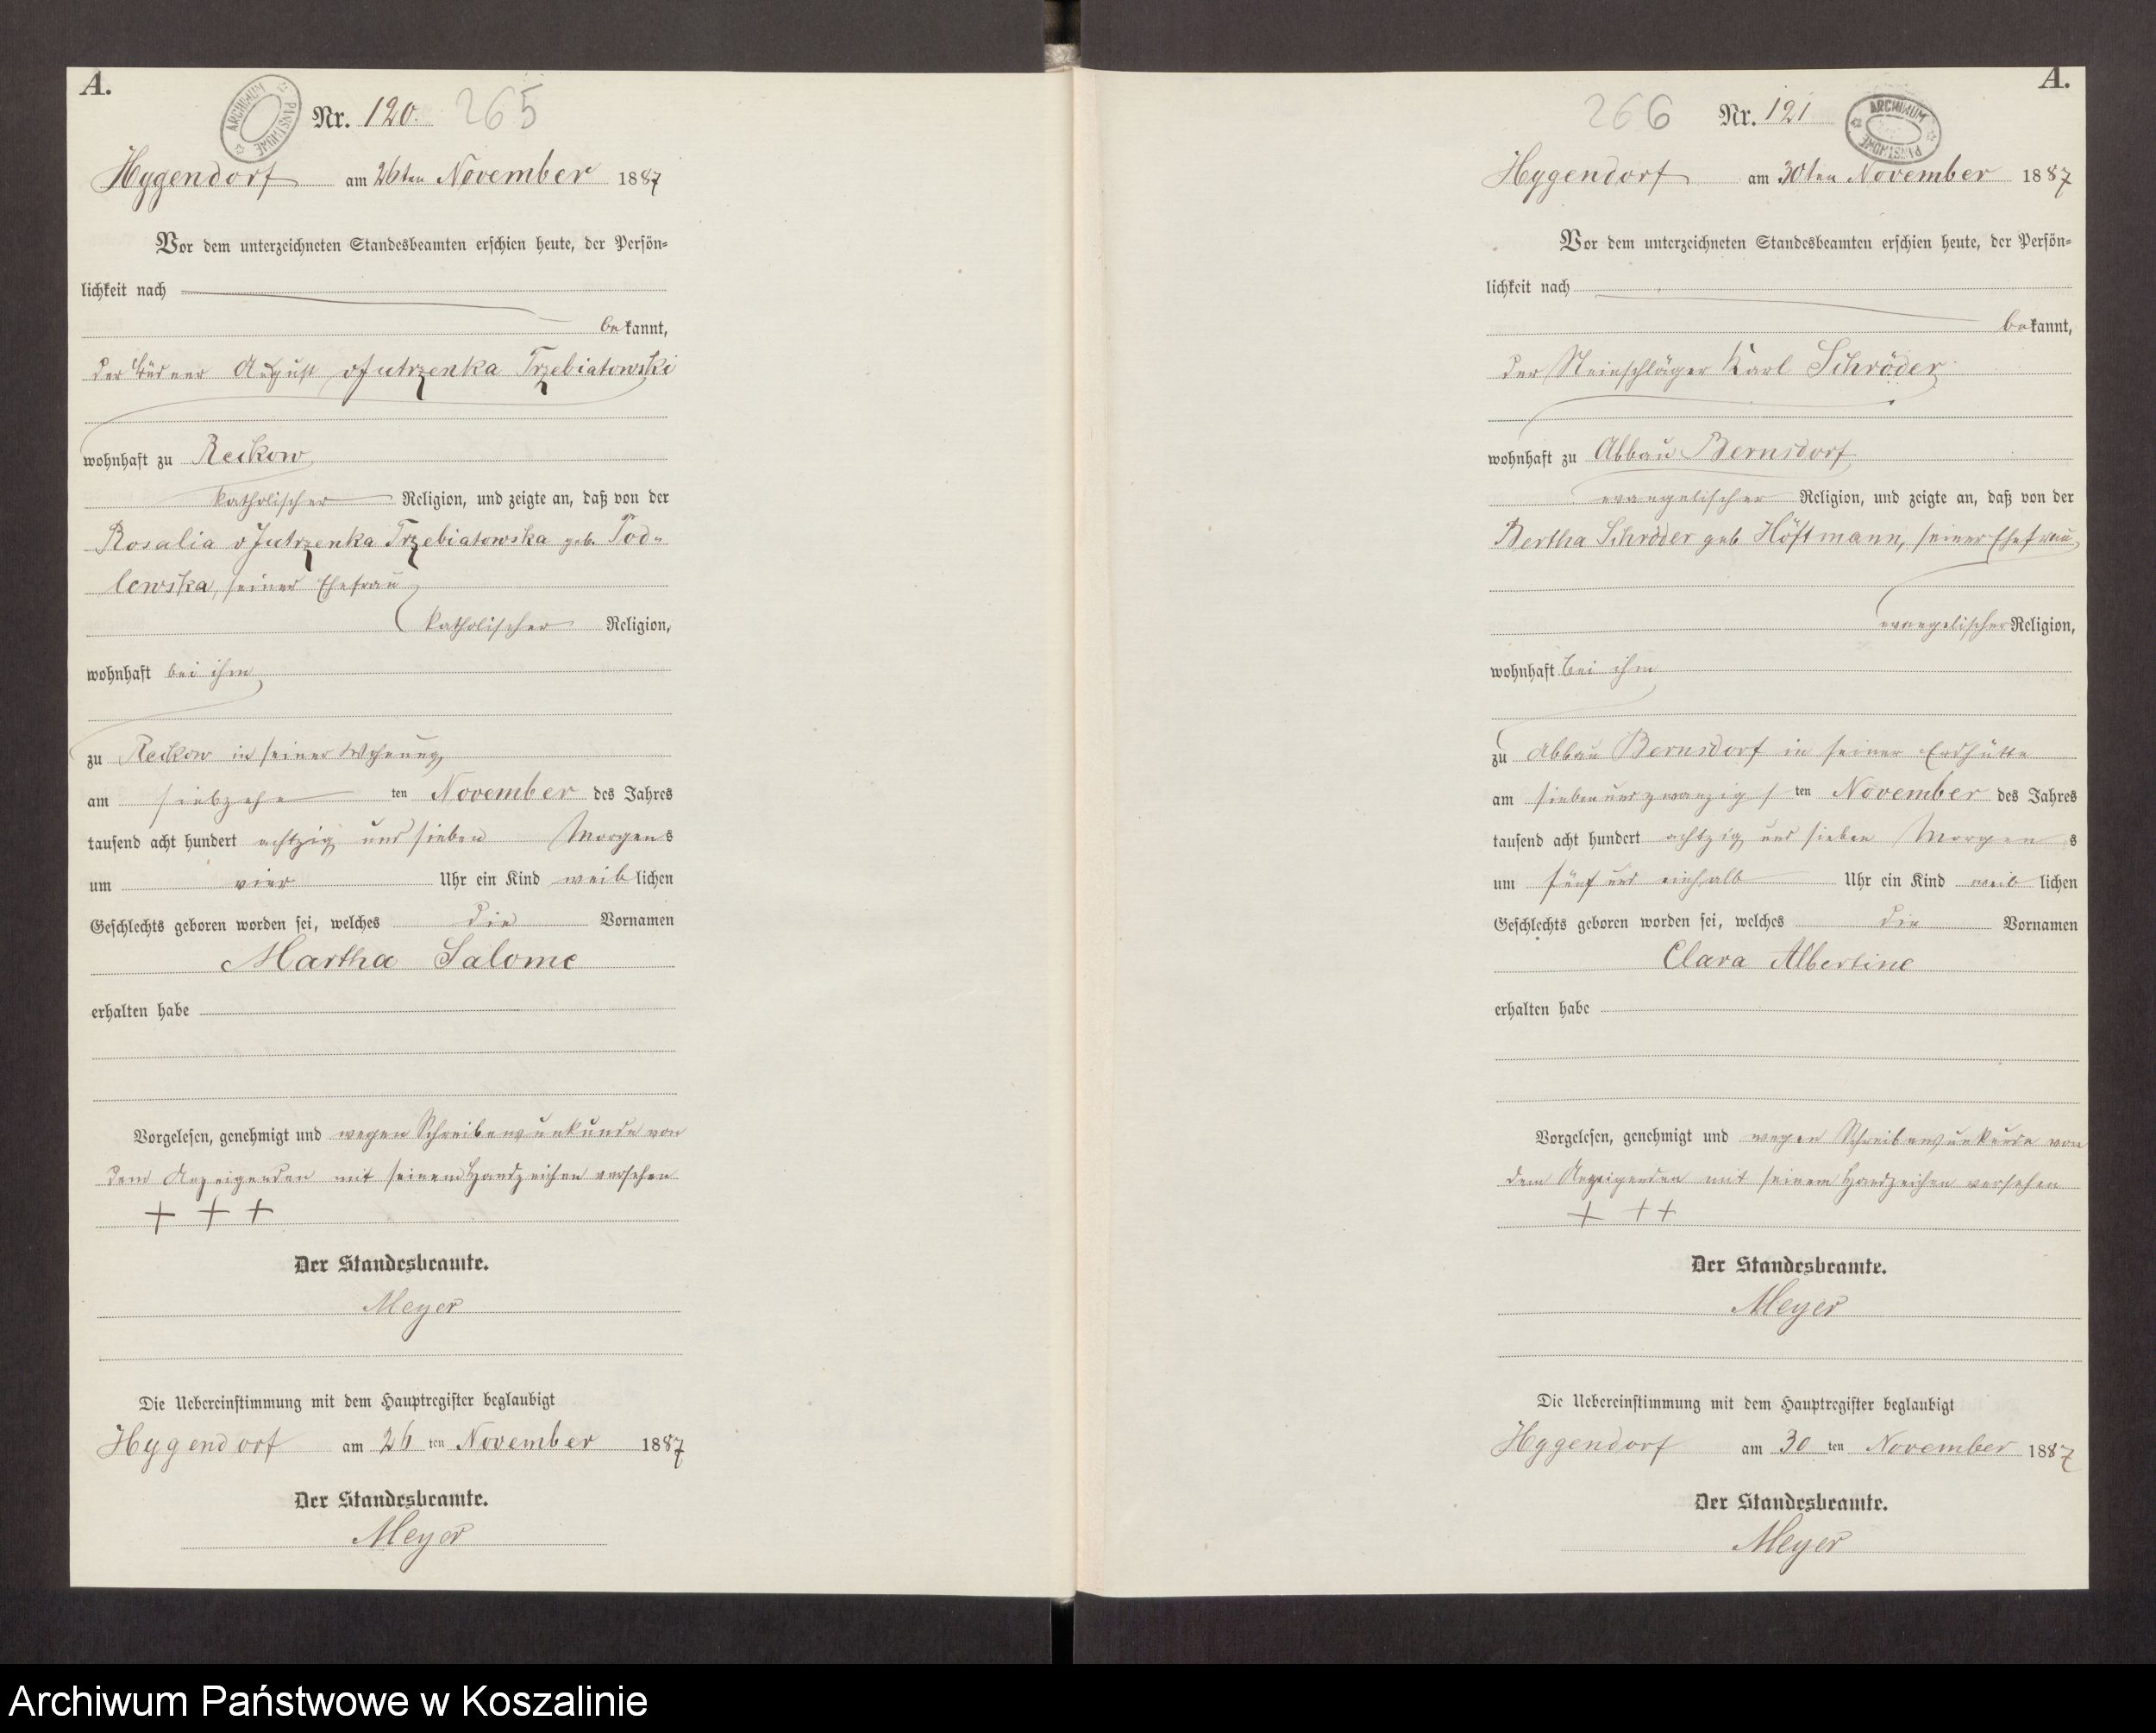 A.
ARCHIWUM PAŃSTWOWE
Nr. 120. 265
Hygendorf am 26ten November 1887
Vor dem unterzeichneten Standesbeamten erschien heute, der Persön=
lichkeit nach
bekannt,
der Büdner August v Jutrzenka Trzebiatowski
wohnhaft zu Reckow
katholischer Religion, und zeigte an, daß von der
Rosalia v Jutrzenka Trzebiatowska geb. Pod=
lewska, seiner Ehefrau
katholischer Religion,
wohnhaft bei ihm
zu Reckow in seiner Wohnung
am siebzehn ten November des Jahres
tausend acht hundert achtzig und sieben Morgens
um vier Uhr ein Kind weiblichen
Geschlechts geboren worden sei, welches die Vornamen
Martha Salome
erhalten habe
Vorgelesen, genehmigt und wegen Schreibensunkunde von
dem Anzeigenden mit seinem Handzeichen versehen
+ + +
Der Standesbeamte.
Meyer
Die Uebereinstimmung mit dem Hauptregister beglaubigt
Hygendorf am 26 ten November 1887
Der Standesbeamte.
Meyer
A.
266 Nr. 121
ARCHIWUM PAŃSTWOWE
Hygendorf am 30ten November 1887
Vor dem unterzeichneten Standesbeamten erschien heute, der Persön=
lichkeit nach
bekannt,
der Steinschläger Karl Schröder
wohnhaft zu Abbau Bernsdorf
evangelischer Religion, und zeigte an, daß von der
Bertha Schröder geb Höftmann, seiner Ehefrau
evangelischer Religion,
wohnhaft bei ihm
zu Abbau Bernsdorf in seiner Erdhütte
am siebenundzwanzigs ten November des Jahres
tausend acht hundert achtzig und sieben Morgens
um fünf und einhalb Uhr ein Kind weiblichen
Geschlechts geboren worden sei, welches die Vornamen
Clara Albertine
erhalten habe
Vorgelesen, genehmigt und wegen Schreibensunkunde von
dem Anzeigenden mit seinem Handzeichen versehen
+ + +
Der Standesbeamte.
Meyer
Die Uebereinstimmung mit dem Hauptregister beglaubigt
Hygendorf am 30 ten November 1887
Der Standesbeamte.
Meyer
Archiwum Państwowe w Koszalinie